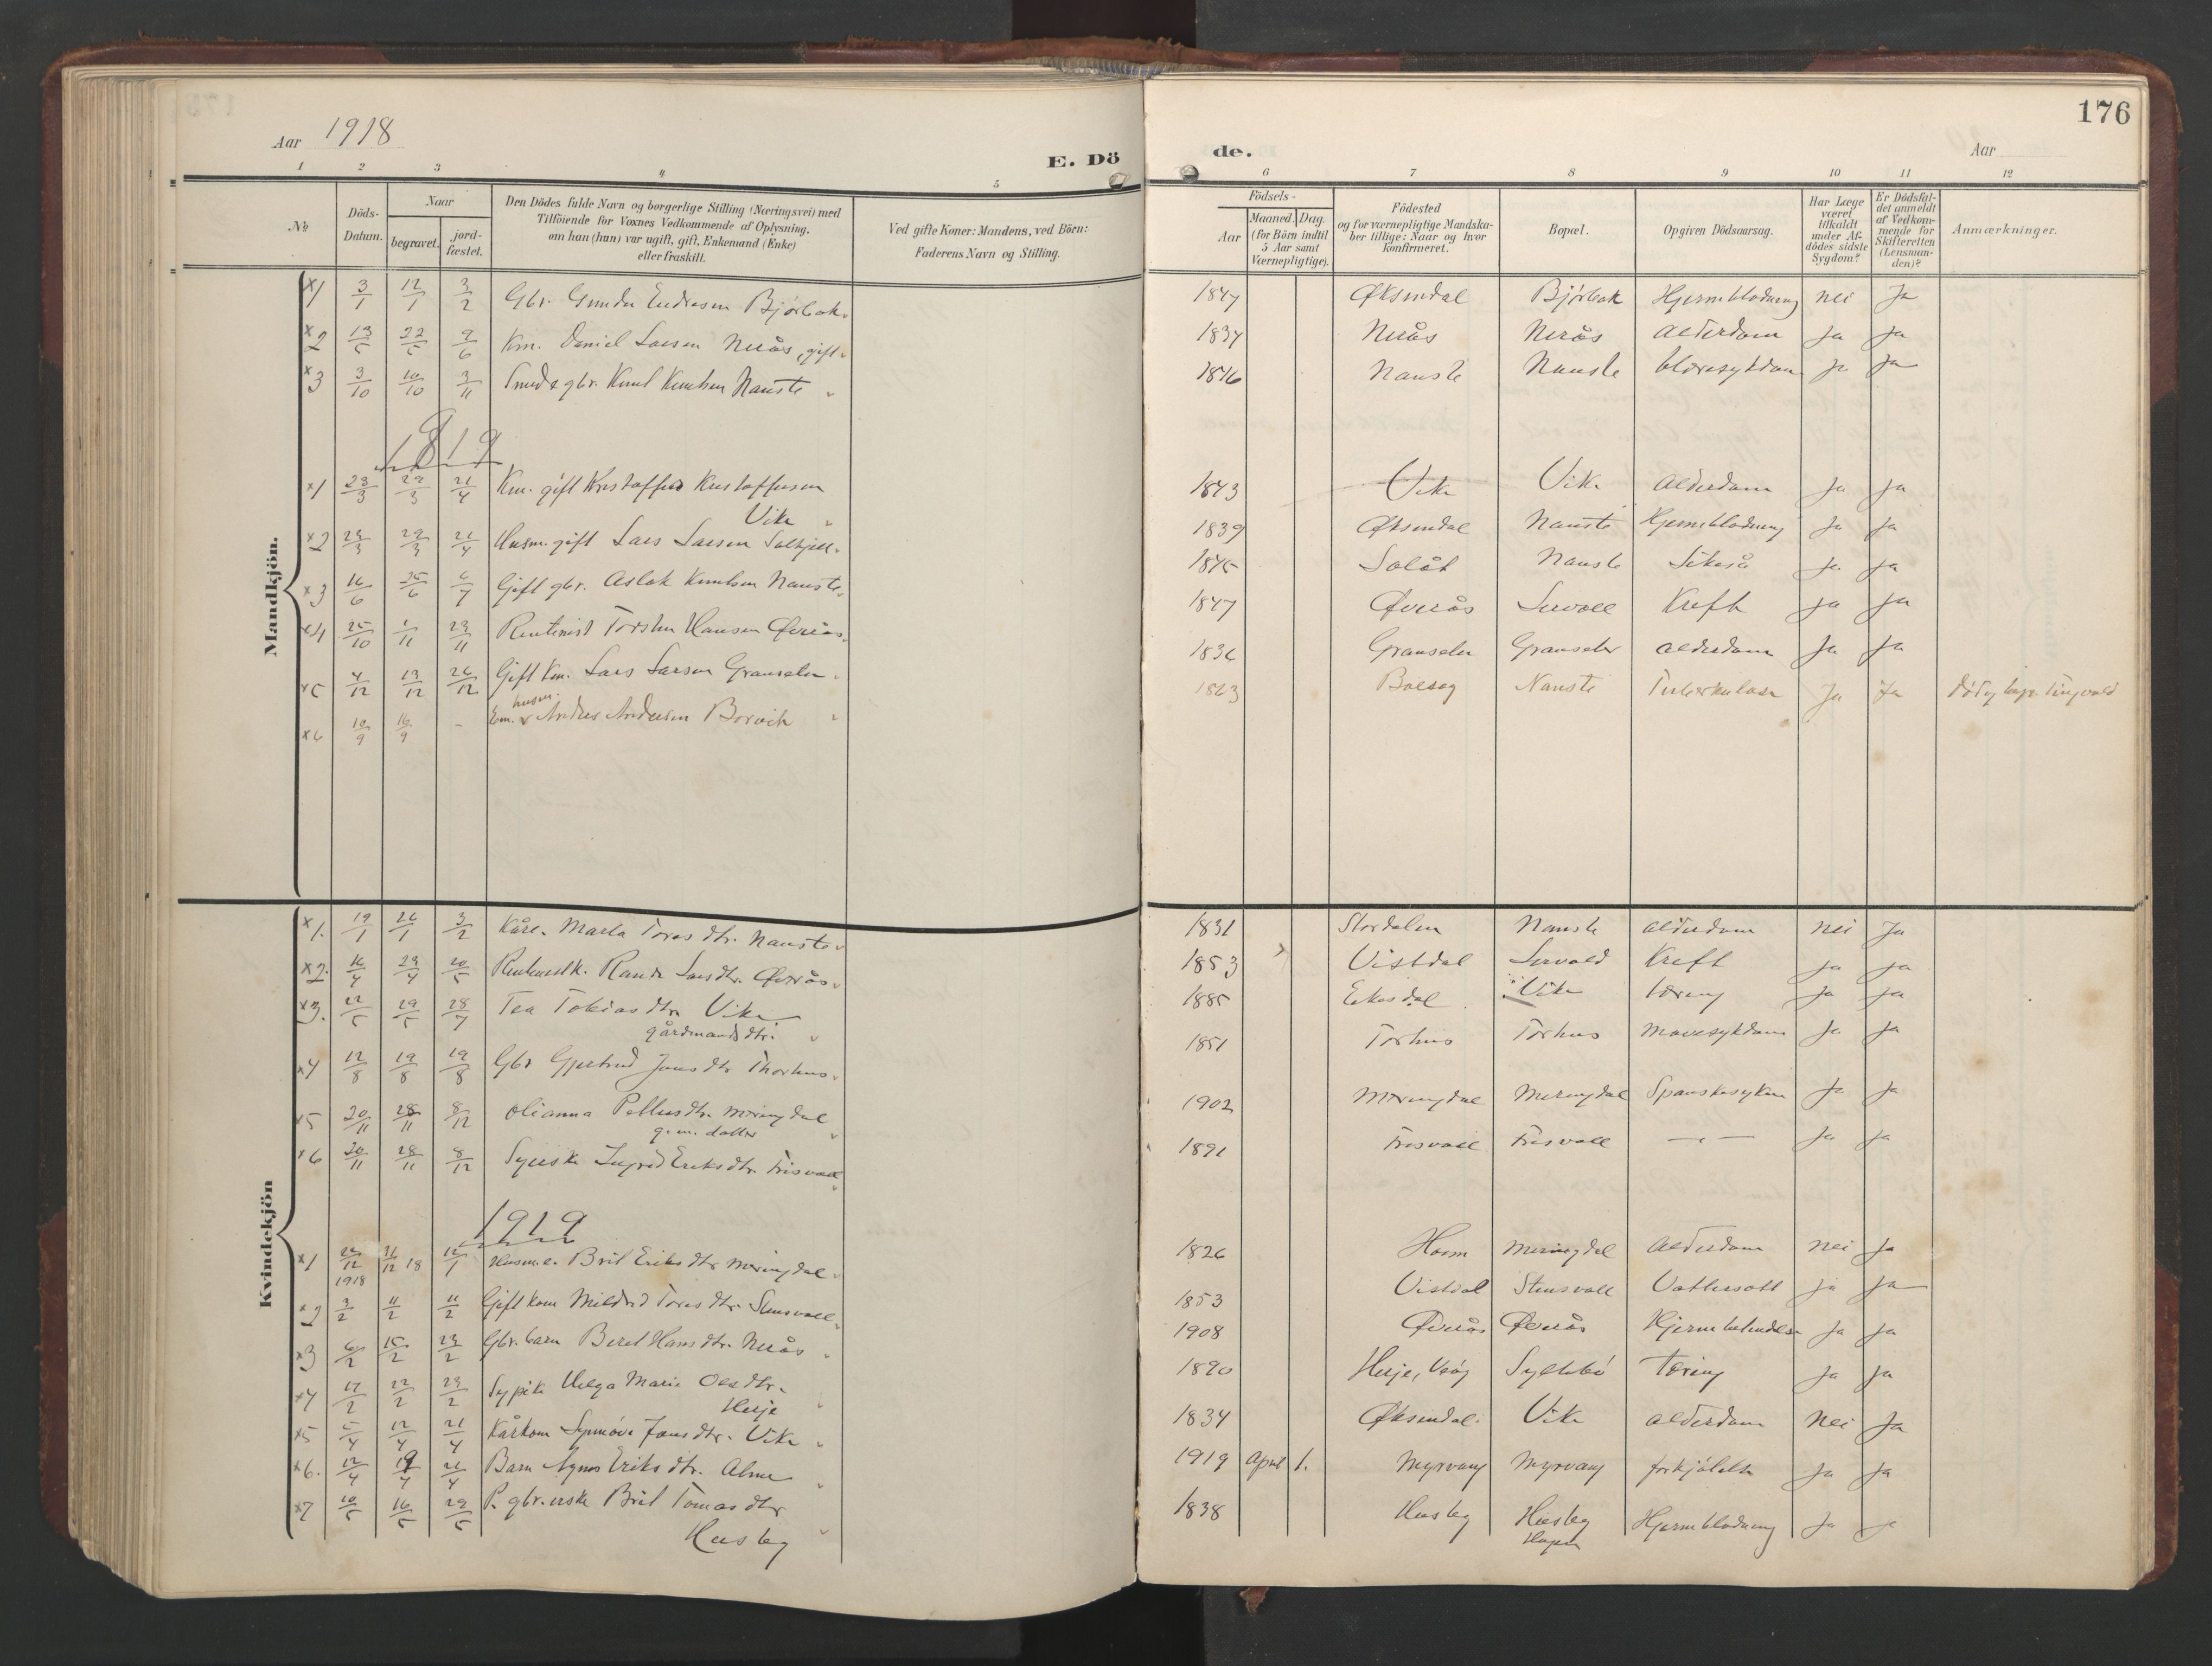 176
Aar 1918
E. Dö
de.
Aar
1 2 3 4 5 6 7 8 9 10 11 12
No
Döds-Datum.
Naar
begravet.
jord-fæstet.
Den Dödes fulde Navn og borgerlige Stilling (Næringsvei) med
Tilföiende for Voxnes Vedkommende af Oplysning,
om han (hun) var ugift, gift, Enkemand (Enke)
eller fraskilt.
Ved gifte Koner: Mandens, ved Börn:
Faderens Navn og Stilling.
Födsels-
Aar
Maaned. Dag.
(for Börn indtil
5 Aar samt
Værnepligtige).
Födested
og for værnepligtige Mandska-
ber tillige: Naar og hvor
konfirmeret.
Bopæl.
Opgiven Dödsaarsag.
Har Læge
været
tilkaldt
under Af-
dödes sidste
Sygdom?
Er Dödsfal-
det anmeldt
af Vedkom-
mende for
Skifteretten
(Lensman-
den)?
Anmærkninger.
Mandkjön.
x1 3/1 12/1 3/2 Gbr. Gunder Endresen Bjørbak. 1847 Øksendal Bjørbak Hjerneblødning nei Ja
x2 13/5 22/5 9/6 Km. Daniel Larsen Nerås, gift 1837 Nerås Nerås Alderdom Ja Ja
x3 3/10 10/10 3/11 Smed & gbr. Knut Knutsen Nauste 1846 Nauste Nauste blæresykdom Ja Ja
1819
x1 23/3 29/3 21/4 Km. gift Kristoffer Kristoffersen
Vike 1843 Vike Vike Alderdom Ja Ja
x2 23/3 29/3 21/4 Husm. gift Lars Larsen 1839 Øksendal Nauste Hjerneblødning Ja Ja
x3 16/6 25/6 6/7 Gift gbr. Aslak Knutsen Nauste 1845 Nauste Ja Ja
x4 25/10 1/11 23/11 Rentenist Torsten Hansen Øverås 1847 Øverås Kreft Ja Ja
x5 4/12 13/12 26/12 Gift Km. Lars Larsen Granseter 1836 Granseter Granseter Alderdom Ja Ja
husm.
x6 10/9 16/9 - Em. v Andres Andersen Borvik 1863 Nauste Tuberkulose Ja Ja død & begr. Tingvold
Kvindekjön
x1. 19/1 26/1 3/2 Kåre. Marta Toresdtr. Nauste 1831 Stordalen Nauste Alderdom Nei Ja
x2. 16/4 23/4 20/5 Randi Larsdtr. Øverås 1853 Vistdal Kreft Ja Ja
x3. 22/5 29/5 28/7 Tea Tobiasdtr. Vike
gårdmandsdtr. 1885 Eikesdal Vike tæring Ja Ja
x4 12/8 19/8 19/8 Gbr Gjertrud Jonsdtr Thorhus 1851 Torhus Torhus Mavesykdom Ja Ja
x5 20/11 28/11 8/12 Olianna Pettersdtr. Meringdal
g.m. datter 1902 Meringdal Meringdal Spanskesyken Ja Ja
x6 20/11 28/11 8/12 Syerske Ingrid Eriksdtr. Frisvoll 1891 Frisvoll Frisvoll — " — Ja Ja
1919
x1 22/12 1918 31/12 18 12/1 Husm.e. Brit Eriksdtr Meringdal 1826 Meringdal Alderdom Nei Ja
x2 3/2 11/2 11/2 Gift kone Mildrid Toresdtr. Stensvoll 1853 Vistdal Stensvoll Vattersott Ja Ja
x3 6/2 15/2 23/2 Gbr. barn Beret Hansdtr. Nerås 1908 Øverås Øverås Hjernebetendelse Ja Ja
x4 17/2 22/2 23/2 Sypike Helga Marie Olsdtr.
Herje 1890 Herje, Veøy Syltebø Tæring Ja Ja
x5 5/4 12/4 21/4 Kårkone Synnøve Jonsdtr. Vike 1834 Øksendal Vike Alderdom Nei Ja
x6. 12/4 19/4 21/4 Barn Agnes Eriksdtr. Alme 1919 April 1. Myrvang Myrvang forkjølelse Ja Ja
x7 10/5 16/5 29/5 P. gbr.erske Brit Tomasdtr
Husby 1838 Husby Husby
Hagen Hjerneblødning Ja Ja